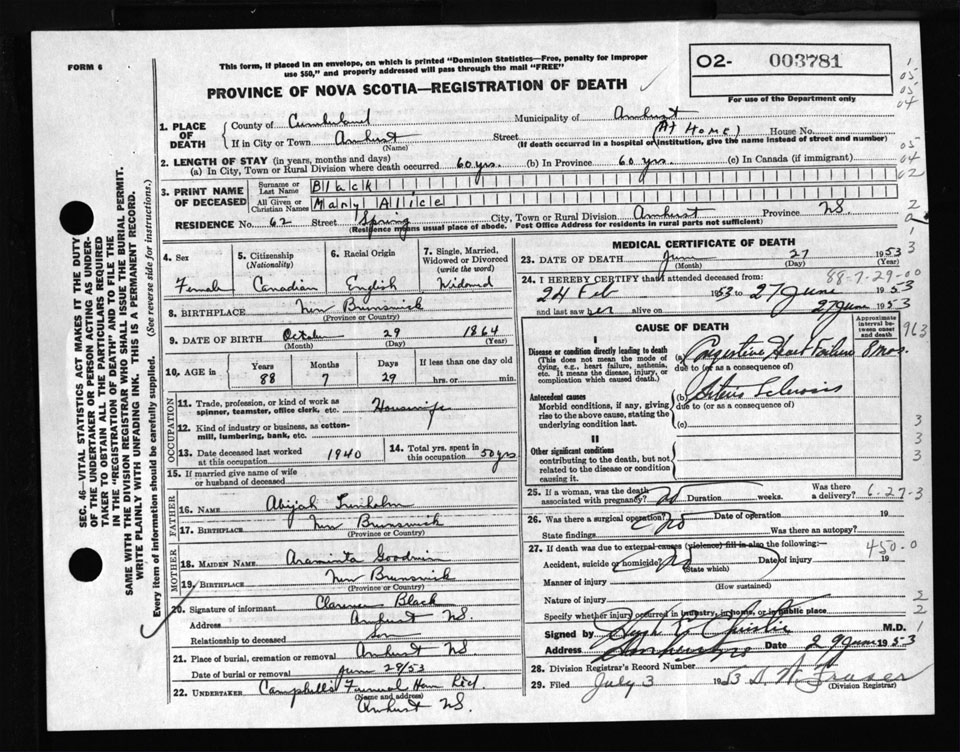 FORM 6
This form, if placed in an envelope, on which is printed "Dominion Statistics—Free, penalty for improper
use $50," and properly addressed will pass through the mail "FREE"
PROVINCE OF NOVA SCOTIA—REGISTRATION OF DEATH
02- 003781
For use of the Department only
1. PLACE OF DEATH
County of Cumberland Municipality of Amherst
If in City or Town Amherst Street (At Home) House No.
(Name) (If death occurred in a hospital or institution, give the name instead of street and number)
2. LENGTH OF STAY (in years, months and days)
(a) In City, Town or Rural Division where death occurred 60 yrs. (b) In Province 60 yrs. (c) In Canada (if immigrant)
3. PRINT NAME OF DECEASED
Surname or Last Name Black
All Given or Christian Names Mary Alice
RESIDENCE No. 62 Street Spring City, Town or Rural Division Amherst Province NS.
(Residence means usual place of abode. Post Office Address for residents in rural parts not sufficient)
4. Sex 5. Citizenship (Nationality) 6. Racial Origin 7. Single, Married, Widowed or Divorced (write the word)
Female Canadian English Widowed
8. BIRTHPLACE New Brunswick
(Province or Country)
9. DATE OF BIRTH October 29 1864
(Month) (Day) (Year)
10. AGE in Years Months Days If less than one day old
88 7 29 hrs. or min.
OCCUPATION
11. Trade, profession, or kind of work as spinner, teamster, office clerk, etc. Housewife
12. Kind of industry or business, as cotton-mill, lumbering, bank, etc.
13. Date deceased last worked at this occupation 1940 14. Total yrs. spent in this occupation 50 yrs.
15. If married give name of wife or husband of deceased
FATHER
16. NAME Abijah
17. BIRTHPLACE New Brunswick
(Province or Country)
MOTHER
18. MAIDEN NAME Araminta Goodwin
19. BIRTHPLACE New Brunswick
(Province or Country)
20. Signature of informant Clarence Black
Address Amherst NS.
Relationship to deceased Son
21. Place of burial, cremation or removal Amherst NS
Date of burial or removal June 29/53
22. UNDERTAKER Campbell's Funeral Home Reg.
(Name and address)
Amherst NS.
MEDICAL CERTIFICATE OF DEATH
23. DATE OF DEATH June 27 1953
(Month) (Day) (Year)
88-7-29-00
24. I HEREBY CERTIFY that I attended deceased from:
24 Feb 1953 to 27 June 1953
and last saw her alive on 27 June 1953
CAUSE OF DEATH
Approximate interval between onset and death
I
Disease or condition directly leading to death (a) Congestive Heart Failure 8 mos.
(This does not mean the mode of dying, e.g., heart failure, asthenia, etc. It means the disease, injury, or complication which caused death.)
due to (or as a consequence of)
Antecedent causes (b) Sclerosis
Morbid conditions, if any, giving rise to the above cause, stating the underlying condition last.
due to (or as a consequence of)
(c)
II
Other significant conditions
contributing to the death, but not related to the disease or condition causing it.
25. If a woman, was the death associated with pregnancy? No Duration weeks. Was there a delivery?
6-27-3
26. Was there a surgical operation? No Date of operation 19
State findings Was there an autopsy?
27. If death was due to external causes (violence) fill in also the following:—
450-0
Accident, suicide or homicide? No Date of injury 19
(State which)
Manner of injury
(How sustained)
Nature of injury
Specify whether injury occurred in industry, in home, or in public place
Signed by Hugh E. Christie M.D.
Address Amherst NS Date 29 June 1953
28. Division Registrar's Record Number
29. Filed July 3 1953 D. W. Fraser
(Division Registrar)
SEC. 46—VITAL STATISTICS ACT MAKES IT THE DUTY
OF THE UNDERTAKER OR PERSON ACTING AS UNDER-
TAKER TO OBTAIN ALL THE PARTICULARS REQUIRED
IN THE "REGISTRATION OF DEATH" AND TO FILE THE
SAME WITH THE DIVISION REGISTRAR WHO SHALL ISSUE THE BURIAL PERMIT.
WRITE PLAINLY WITH UNFADING INK. THIS IS A PERMANENT RECORD.
Every item of information should be carefully supplied. (See reverse side for instructions.)